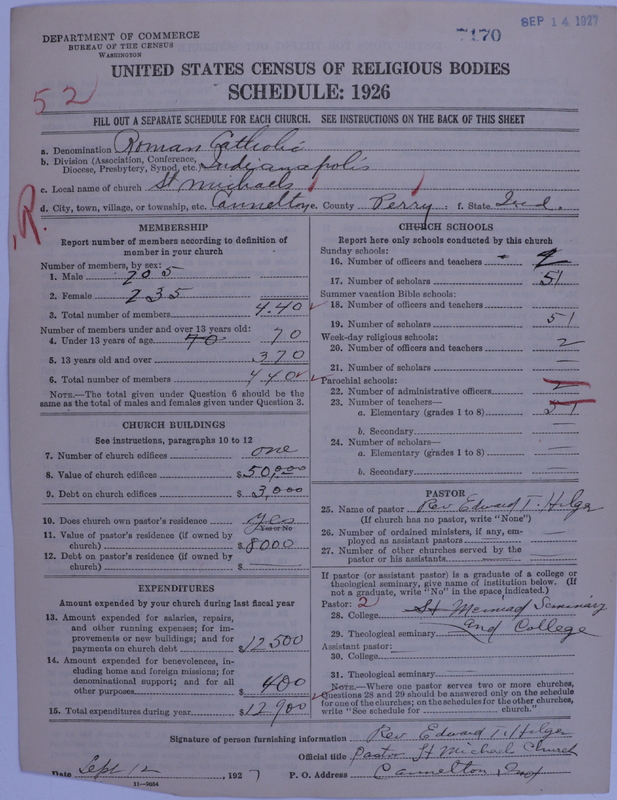 SEP 14 1927
7170
DEPARTMENT OF COMMERCE
BUREAU OF THE CENSUS
WASHINGTON
UNITED STATES CENSUS OF RELIGIOUS BODIES
SCHEDULE: 1926
52
FILL OUT A SEPARATE SCHEDULE FOR EACH CHURCH. SEE INSTRUCTIONS ON THE BACK OF THIS SHEET
a. Denomination Roman Catholic
b. Division (Association, Conference, Diocese, Presbytery, Synod, etc.) Indianapolis
c. Local name of church St Michaels
d. City, town, village, or township, etc. Cannelton e. County Perry f. State Ind.
R.
MEMBERSHIP
Report number of members according to definition of
member in your church
Number of members, by sex:
1. Male 205
2. Female 235
3. Total number of members 440
Number of members under and over 13 years old:
4. Under 13 years of age 70 70
5. 13 years old and over 370
6. Total number of members 440
NOTE.—The total given under Question 6 should be
same as the total of males and females given under Question 3.
CHURCH BUILDINGS
See instructions, paragraphs 10 to 12
7. Number of church edifices one
8. Value of church edifices $50,000
9. Debt on church edifices $3,000
10. Does church own pastor's residence yes
Yes or No
11. Value of pastor's residence (if owned by
church) $8000
12. Debt on pastor's residence (if owned by
church) $
EXPENDITURES
Amount expended by your church during last fiscal year
13. Amount expended for salaries, repairs,
and other running expenses; for im-
provements or new buildings; and for
payments on church debt $12500
14. Amount expended for benevolences, in-
cluding home and foreign missions; for
denominational support; and for all
other purposes $400
15. Total expenditures during year $12900
CHURCH SCHOOLS
Report here only schools conducted by this church
Sunday schools:
16. Number of officers and teachers
17. Number of scholars 51
Summer vacation Bible schools:
18. Number of officers and teachers
19. Number of scholars 51
Week-day religious schools:
20. Number of officers and teachers 2
21. Number of scholars —
Parochial schools:
22. Number of administrative officers 2
23. Number of teachers—
a. Elementary (grades 1 to 8) 51
b. Secondary —
24. Number of scholars—
a. Elementary (grades 1 to 8) —
b. Secondary —
PASTOR
25. Name of pastor Rev Edward T. Hilger
(If church has no pastor, write "None")
26. Number of ordained ministers, if any, em-
ployed as assistant pastors —
27. Number of other churches served by the
pastor or his assistants —
If pastor (or assistant pastor) is a graduate of a college or
theological seminary, give name of institution below. (If
not a graduate, write "No" in the space indicated.)
Pastor: 2
28. College St Meinrad Seminary
29. Theological seminary and College
Assistant pastor:
30. College
31. Theological seminary —
NOTE.—Where one pastor serves two or more churches,
Questions 28 and 29 should be answered only on the schedule
for one of the churches; on the schedules for the other churches,
write "See schedule for church."
Signature of person furnishing information Rev Edward T. Hilger
Official title Pastor St Michaels Church
Date Sept 12, 1927 P. O. Address Cannelton Ind
11—9864